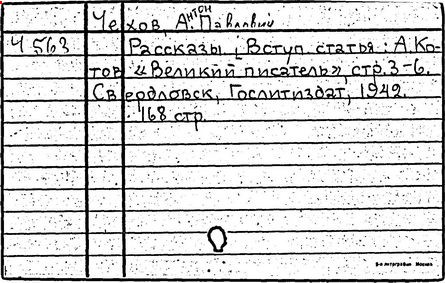 Чехов, Антон Павлович
Ч 563 Рассказы. [Вступ. статья: А. Ко-
тов "Великий писатель", стр. 3-6.
Свердловск, Гослитиздат, 1942.
168 стр.